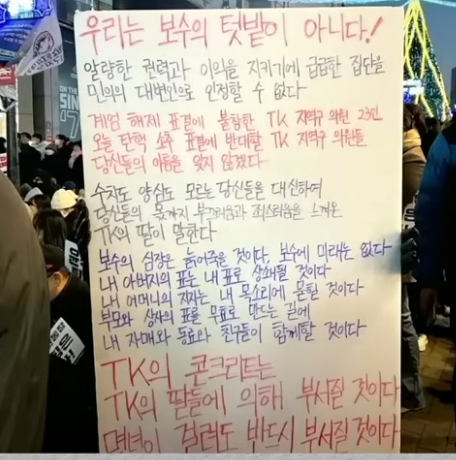 우리는 보수의 텃밭이 아니다!
알량한 권력과 이익을 지키기에 급급한 집단을
민의의 대변인으로 인정할 수 없다
계엄 해제 표결에 불참한 TK 지역구 의원 23인
오늘 탄핵 소추 표결에 반대할 TK 지역구 의원들
당신들의 이름을 잊지 않겠다
수치도 양심도 모르는 당신들을 대신하여
당신들의 몫까지 부끄러움과 죄스러움을 느껴온
TK의 딸이 말한다
보수의 심장은 늙어죽을 것이다, 보수에 미래는 없다
내 아버지의 표는 내 표로 상쇄될 것이다
내 어머니의 지지는 내 목소리에 묻힐 것이다
부모와 상사의 표를 무효로 만드는 길에
내 자매와 동료와 친구들이 함께할 것이다
TK의 콘크리트는
TK의 딸들에 의해 부서질 것이다
몇년이 걸려도 반드시 부서질 것이다